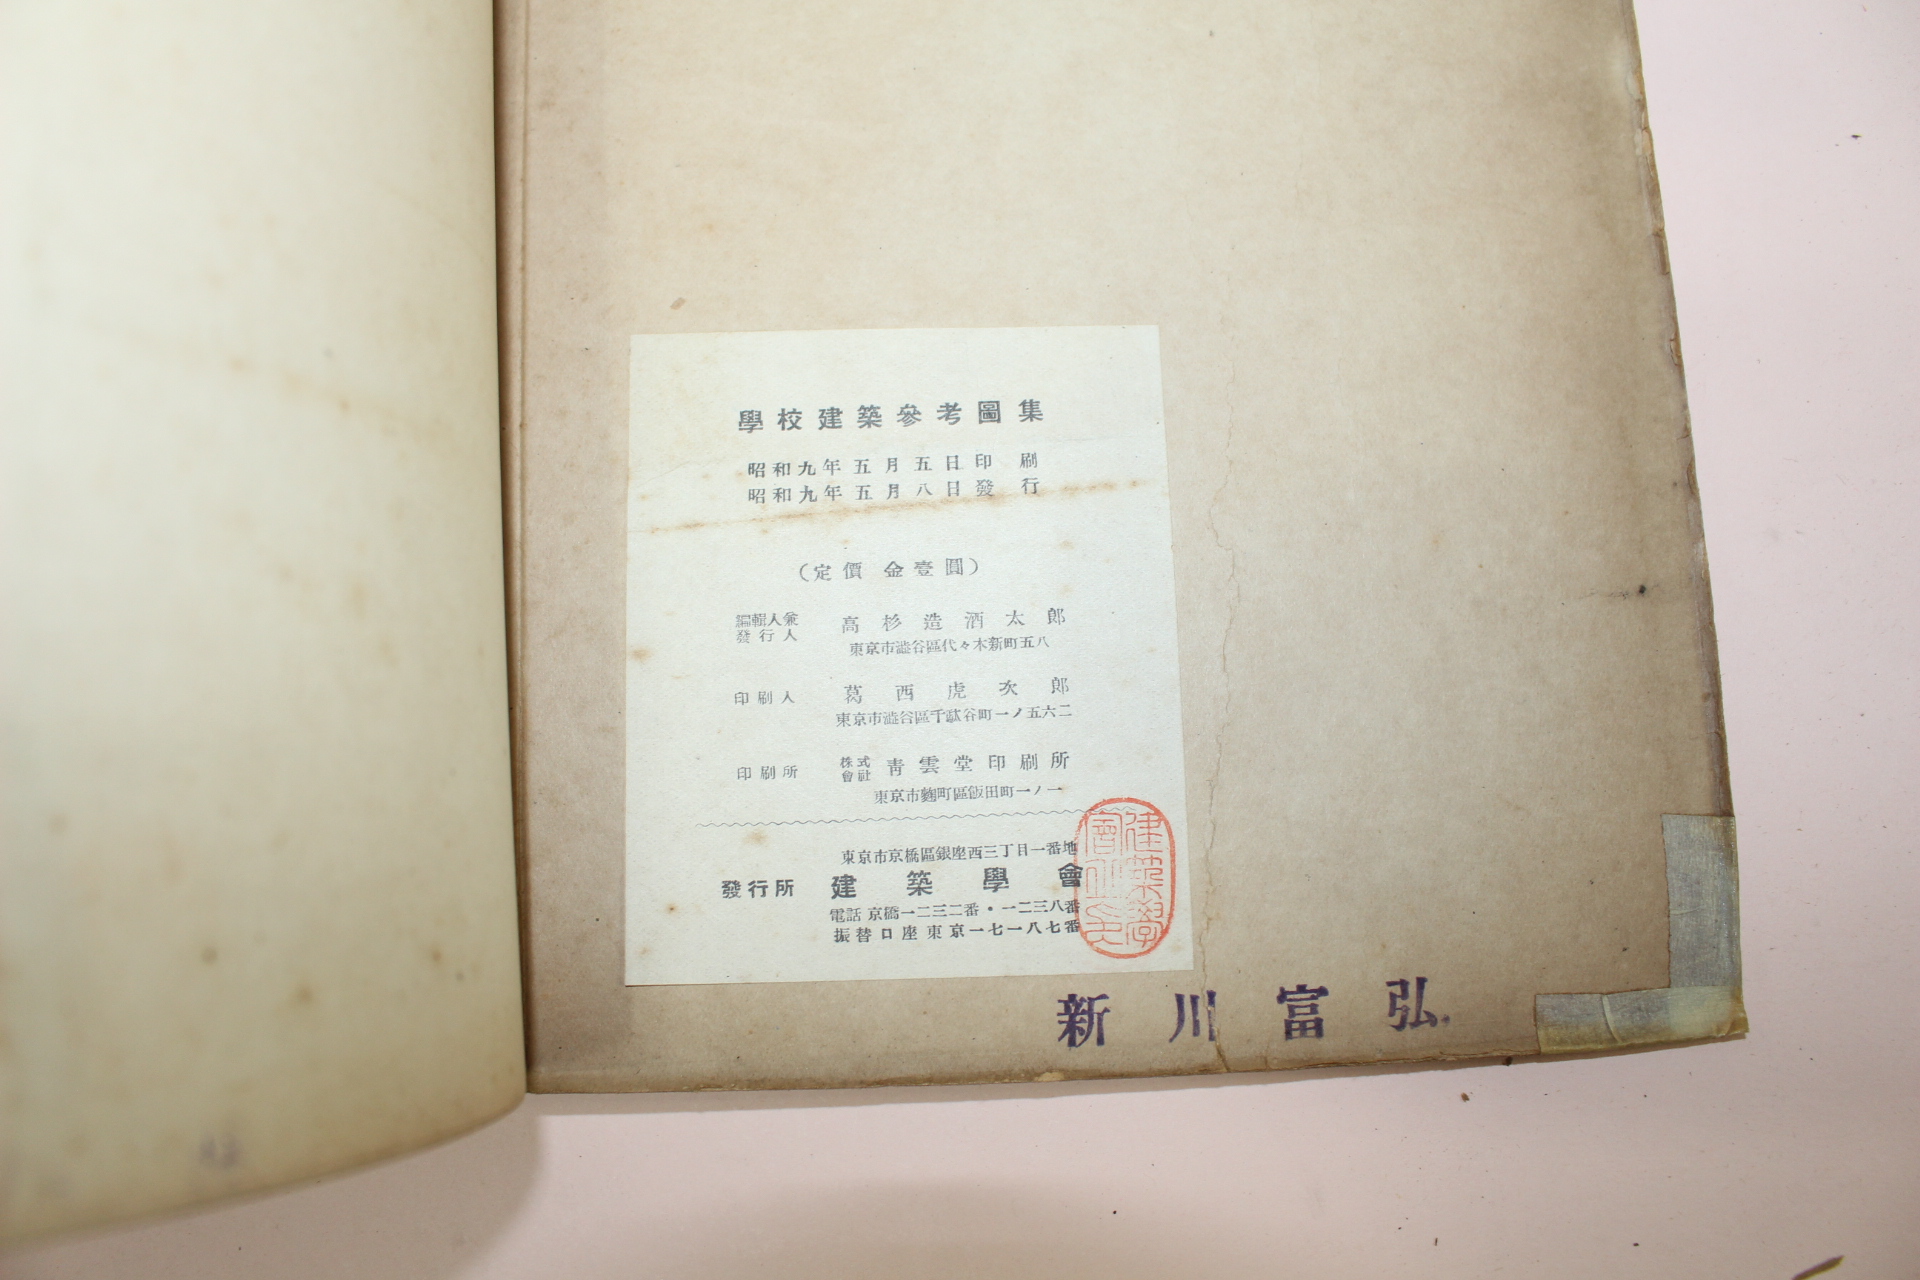 學校建築參考圖集
昭和九年五月五日印刷
昭和九年五月八日發行
（定價 金壹圓）
編輯人兼
發行人
高杉造酒太郎
東京市澁谷區代々木新町五八
印刷人 葛西虎次郎
東京市澁谷區千駄谷町一ノ五六二
印刷所 株式會社 靑雲堂印刷所
東京市麴町區飯田町一ノ一
東京市京橋區銀座西三丁目一番地
發行所 建築學會
電話 京橋一二三二番・一二三八番
振替口座東京一七一八七番
建築學
會
新川富弘